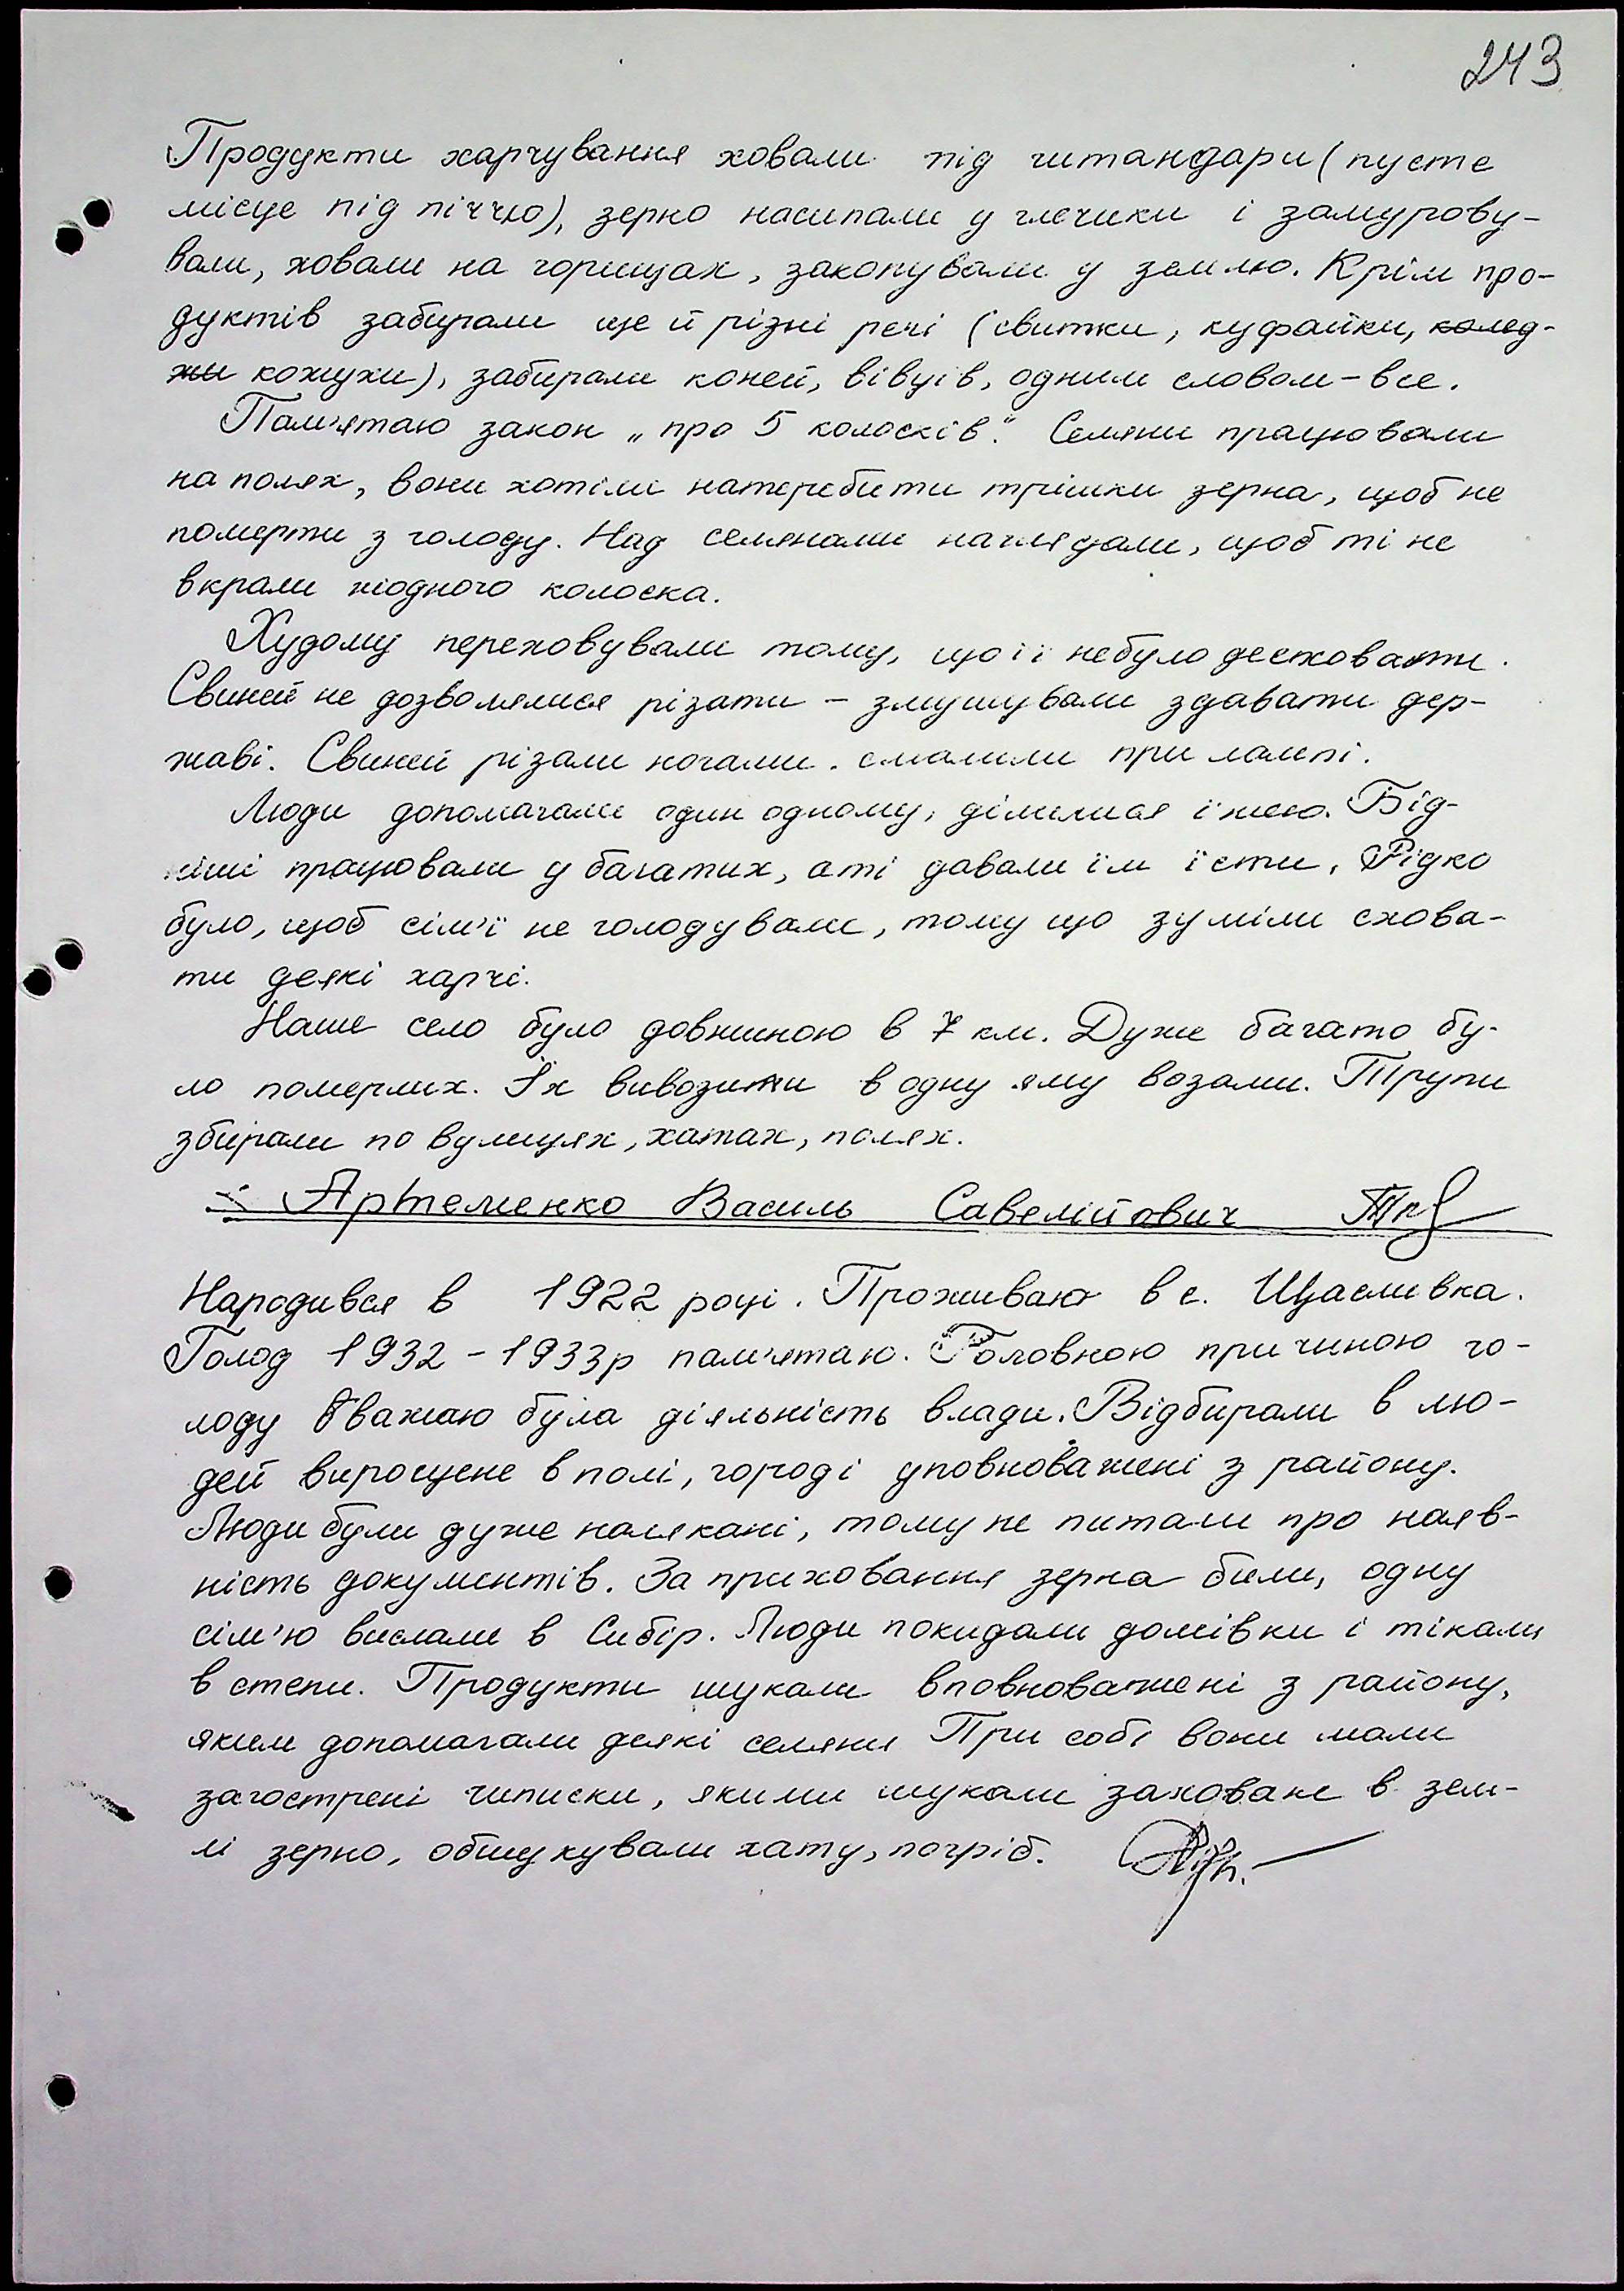 243
Продукти харчування ховали під штандари (пусте
місце під піччю), зерно насипали у глечики і замурову-
вали, ховали на горищах, закопували у землю. Крім про-
дуктів забирали ще й різні речі (свитки, куфайки, кожухи), забирали коней, вівців, одним словом - все.
Пам'ятаю закон „про 5 колосків". Селяни працювали
на полях, вони хотіли натеребити трішки зерна, щоб не
померти з голоду. Над селянами наглядали, щоб ті не
вкрали жодного колоска.
Худому переховували тому, що її небуло десховати.
Свиней не дозволялися різати - змушували здавати дер-
жаві. Свиней різали ночами. смалили при лампі.
Люди допомагали один одному, ділилися їжею. Бід-
ніші працювали у багатих, а ті давали їм їсти. Рідко
було, щоб сім'ї не голодували, тому що зуміли схова-
ти деякі харчі.
Наше село було довжиною в 7 км. Дуже багато бу-
ло померлих. Їх вивозили в одну яму возами. Трупи
збирали по вулицях, хатах, полях.
Артеменко Василь Савелійович
Народився в 1922 році. Проживаю в с. Щасливка.
Голод 1932 - 1933р пам'ятаю. Головною причиною го-
лоду вважаю була діяльність влади. Відбирали в лю-
дей вирощене в полі, городі уповноважені з району.
Люди були дуже налякані, тому не питали про наяв-
ність документів. За приховання зерна били, одну
сім'ю вислали в Сибір. Люди покидали домівки і тікали
в степи. Продукти шукали вповноважені з району,
яким допомагали деякі селяни При собі вони мали
загострені шписки, якими шукали заховане в зем-
лі зерно, обшукували хату, погріб.